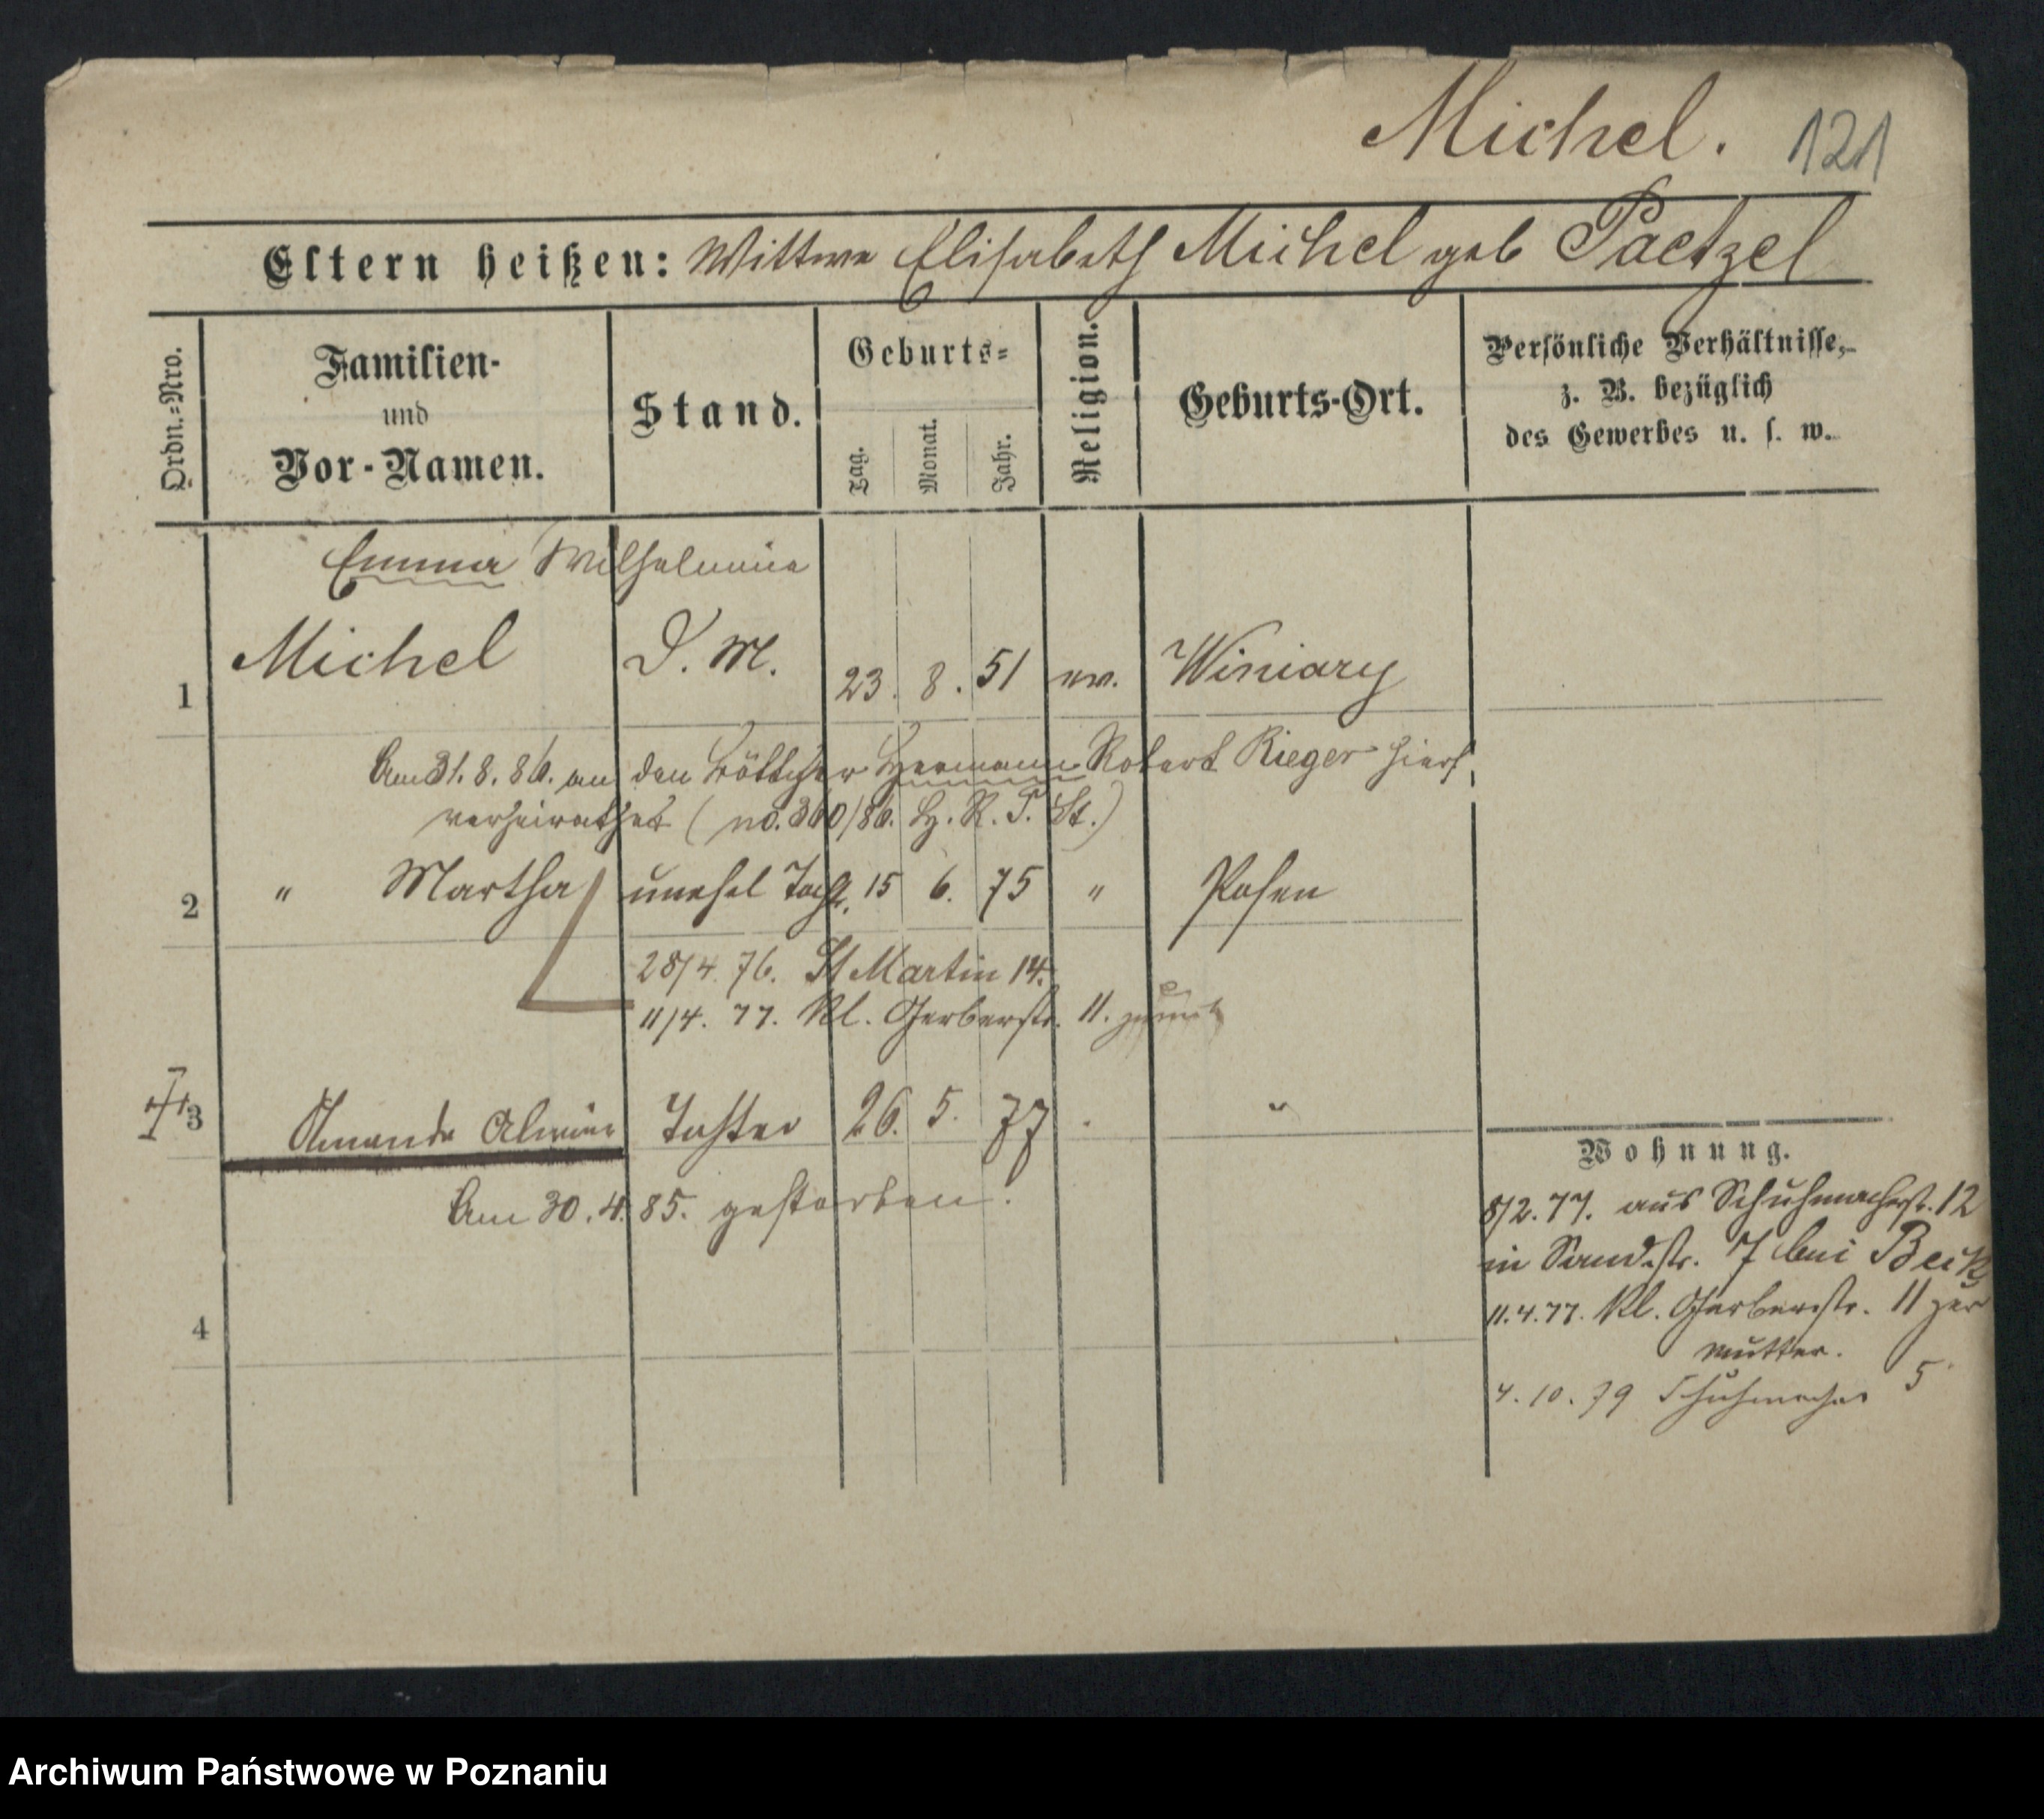 Michel. 121
Eltern heißen: Wittwe Elisabeth Michel geb Paetzel
Ordn.=Nro.
Familien-
und
Vor-Namen.
Stand.
Geburts=
Tag.
Monat.
Jahr.
Religion.
Geburts-Ort.
Persönliche Verhältnisse,
z. B. bezüglich
des Gewerbes u. s. w.
Emma Wilhelmine
1 Michel D. M. 23. 8. 51 ev. Winiary
Am 31. 8. 86. an den Böttcher Hermann Robert Rieger hier
verheirathet (no. 360/86. H. R. P. St.)
2 " Martha unehel Tocht. 15 6. 75 " Posen
28/4. 76. St Martin 14.
11/4. 77. Kl. Gerberstr. 11.
3 Amanda Alwine Tochter 26. 5. 77 "
Am 30. 4. 85. gestorben.
4
Wohnung.
8/2. 77. aus Schuhmacherst. 12
in Sandstr. 7 bei Beik
11. 4. 77. Kl. Gerberstr. 11 zur
Mutter.
4. 10. 79 Schuhmacher 5
Archiwum Państwowe w Poznaniu